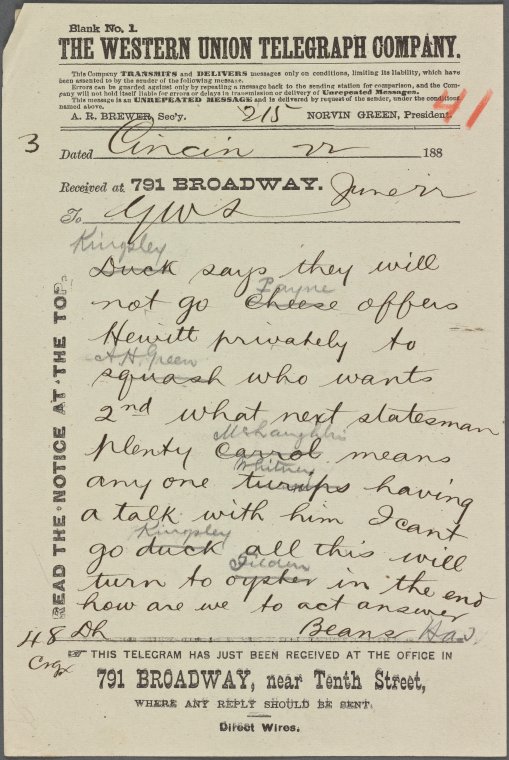 Blank No. 1.
THE WESTERN UNION TELEGRAPH COMPANY.
This Company TRANSMITS and DELIVERS messages only on conditions, limiting its liability, which have
been assented to by the sender of the following message.
Errors can be guarded against only by repeating a message back to the sending station for comparison, and the Com-
pany will not hold itself liable for errors or delays in transmission or delivery of Unrepeated Messages.
This message is an UNREPEATED MESSAGE and is delivered by request of the sender, under the conditions
named above.
A. R. BREWER, Sec'y. 215 NORVIN GREEN, President.
41
3
Dated Cincin 22 188
Received at 791 BROADWAY. June 22
To GWS
Kingsley
Duck says they will
Payne
not go cheese offers
Hewitt privately to
A. H. Green
squash who wants
2nd what next statesman
McLaughlin
plenty carrol means
Whitney
any one turnips having
a talk with him I cant
Kingsley
go duck all this will
Tilden
turn to oyster in the end
how are we to act answer
48 Dh Beans
READ THE NOTICE AT THE TOP.
THIS TELEGRAM HAS JUST BEEN RECEIVED AT THE OFFICE IN
791 BROADWAY, near Tenth Street,
WHERE ANY REPLY SHOULD BE SENT.
Direct Wires.